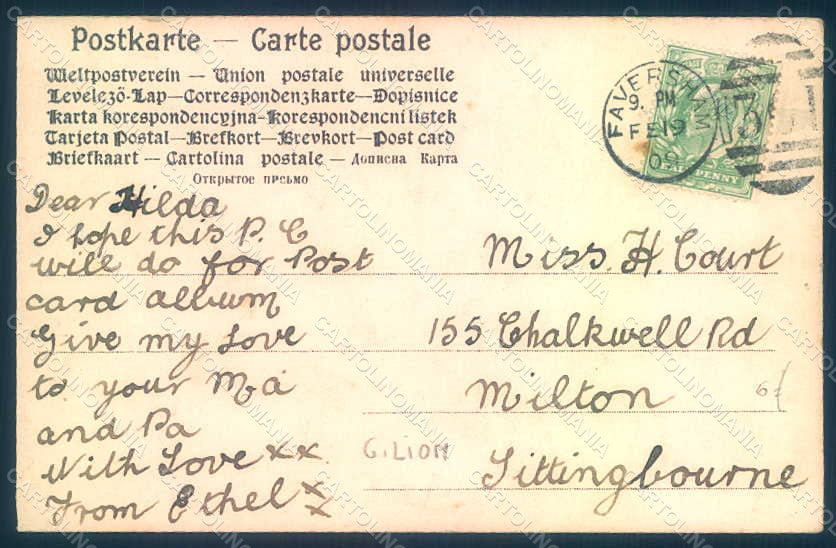 Postkarte — Carte postale
Weltpostverein — Union postale universelle
Levelező-Lap—Correspondenzkarte—Dopisnice
Karta korespondencyjna-Korespondenční lístek
Tarjeta Postal—Brefkort—Brevkort—Post card
Briefkaart — Cartolina postale — Дописна Карта
Открытое письмо
FAVERSHAM
9. PM
FE 19
09
PENNY
Dear Hilda
I hope this P. C
will do for Post
card album
Give my Love
to your Ma
and Pa
With Love xx
From Ethel x
x
Miss. H. Court
155 Chalkwell Rd
Milton
Sittingbourne
G. LION
CARTOLINOMANIA